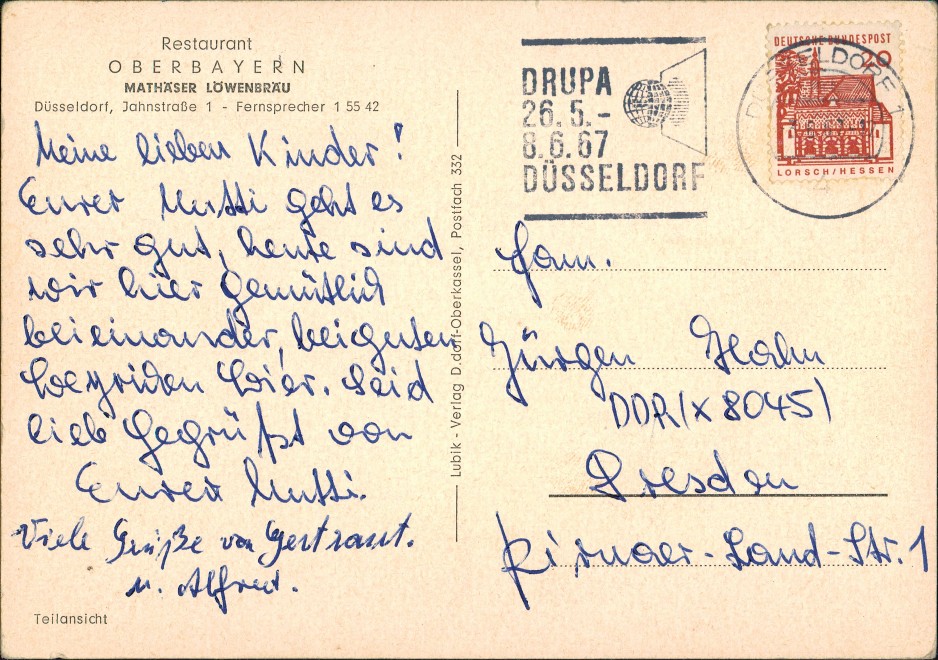 Restaurant
OBERBAYERN
MATHÄSER LÖWENBRÄU
Düsseldorf, Jahnstraße 1 - Fernsprecher 1 55 42
Meine lieben Kinder!
Eurer Mutti geht es
sehr gut, heute sind
wir hier gemütlich
beieinander, bei guten
bayriden Bier. Seid
lieb gegrüßt von
Eurer Mutti.
Viele Grüße von Gertraut.
u. Alfred.
Teilansicht
Lubik - Verlag D.dorf-Oberkassel, Postfach 332
DRUPA
26.5.-
8.6.67
DÜSSELDORF
DÜSSELDORF 1
DEUTSCHE BUNDESPOST
20
LORSCH/HESSEN
Fam.
Jürgen Hahn
DDR (X 8045)
Dresden
Pirnaer-Land-Str. 1